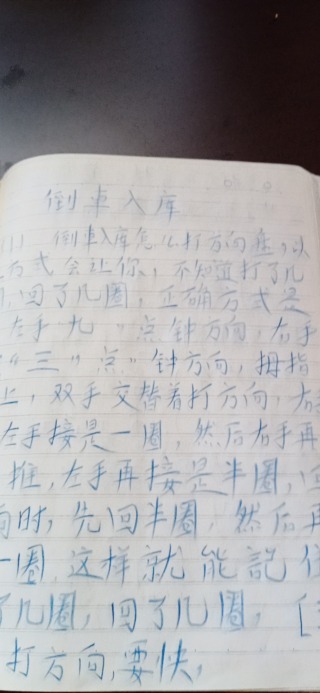 倒車入库
(1) 倒車入库怎么打方向
方式会让你,不知道打了几
回了几圈,正确方式是
左手九"点钟方向,右手
"三"点"钟方向,拇指
上,双手交替着打方向,右
左手接是一圈,然后右手再
推,左手再接是半圈,
时,先回半圈,然后再
一圈,这样就能記住
了几圈,回了几圈,
打方向,要快,